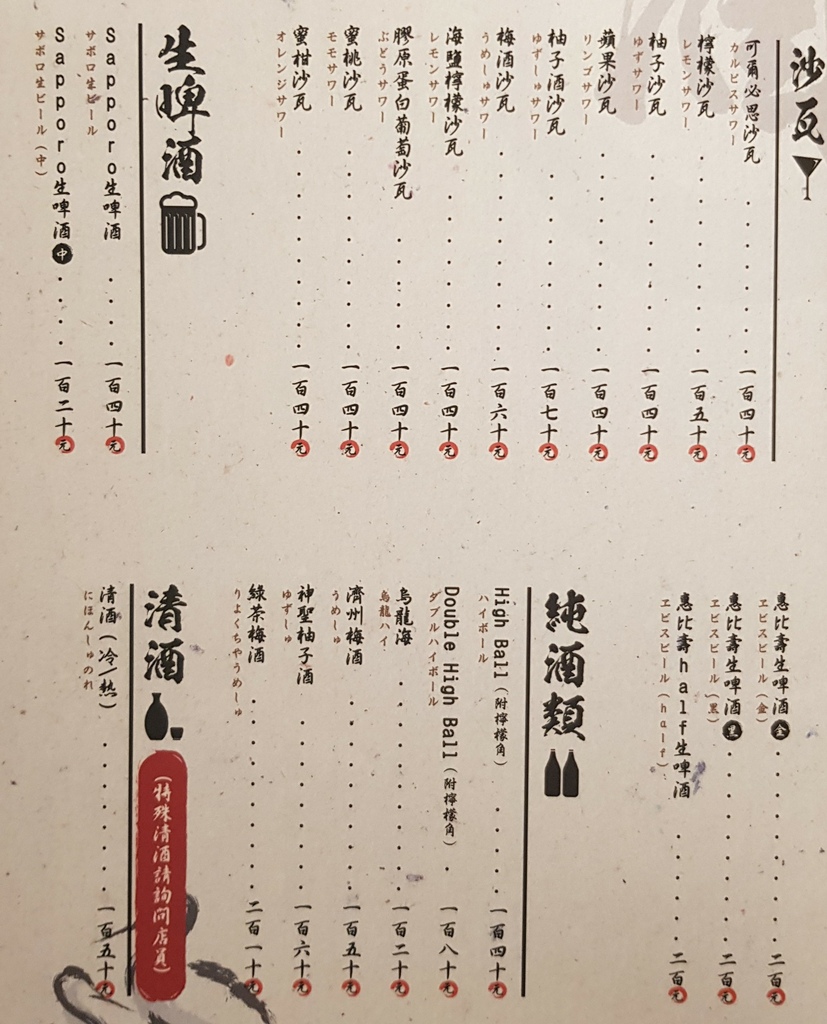 沙瓦
可爾必思沙瓦 一百四十元
カルピスサワー
檸檬沙瓦 一百五十元
レモンサワー
柚子沙瓦 一百四十元
ゆずサワー
蘋果沙瓦 一百四十元
リンゴサワー
柚子酒沙瓦 一百七十元
ゆずしゅサワー
梅酒沙瓦 一百六十元
うめしゅサワー
海鹽檸檬沙瓦 一百四十元
レモンサワー
膠原蛋白葡萄沙瓦 一百四十元
ぶどうサワー
蜜桃沙瓦 一百四十元
モモサワー
蜜柑沙瓦 一百四十元
オレンジサワー
生啤酒
Sapporo生啤酒 一百四十元
サポロ生ビール
Sapporo生啤酒 中 一百二十元
サポロ生ビール(中)
惠比壽生啤酒 金 二百元
ヱビスビール(金)
惠比壽生啤酒 黑 二百元
ヱビスビール(黒)
惠比壽half生啤酒 二百元
ヱビスビール(half)
純酒類
High Ball(附檸檬角) 一百四十元
ハイボール
Double High Ball(附檸檬角) 一百八十元
ダブルハイボール
烏龍海 一百二十元
烏龍ハイ
濟州梅酒 一百五十元
うめしゅ
神聖柚子酒 一百六十元
ゆずしゅ
綠茶梅酒 二百一十元
りよくちやうめしゅ
清酒
(特殊清酒請詢問店員)
清酒(冷/熱) 一百五十元
にほんしゅのれ